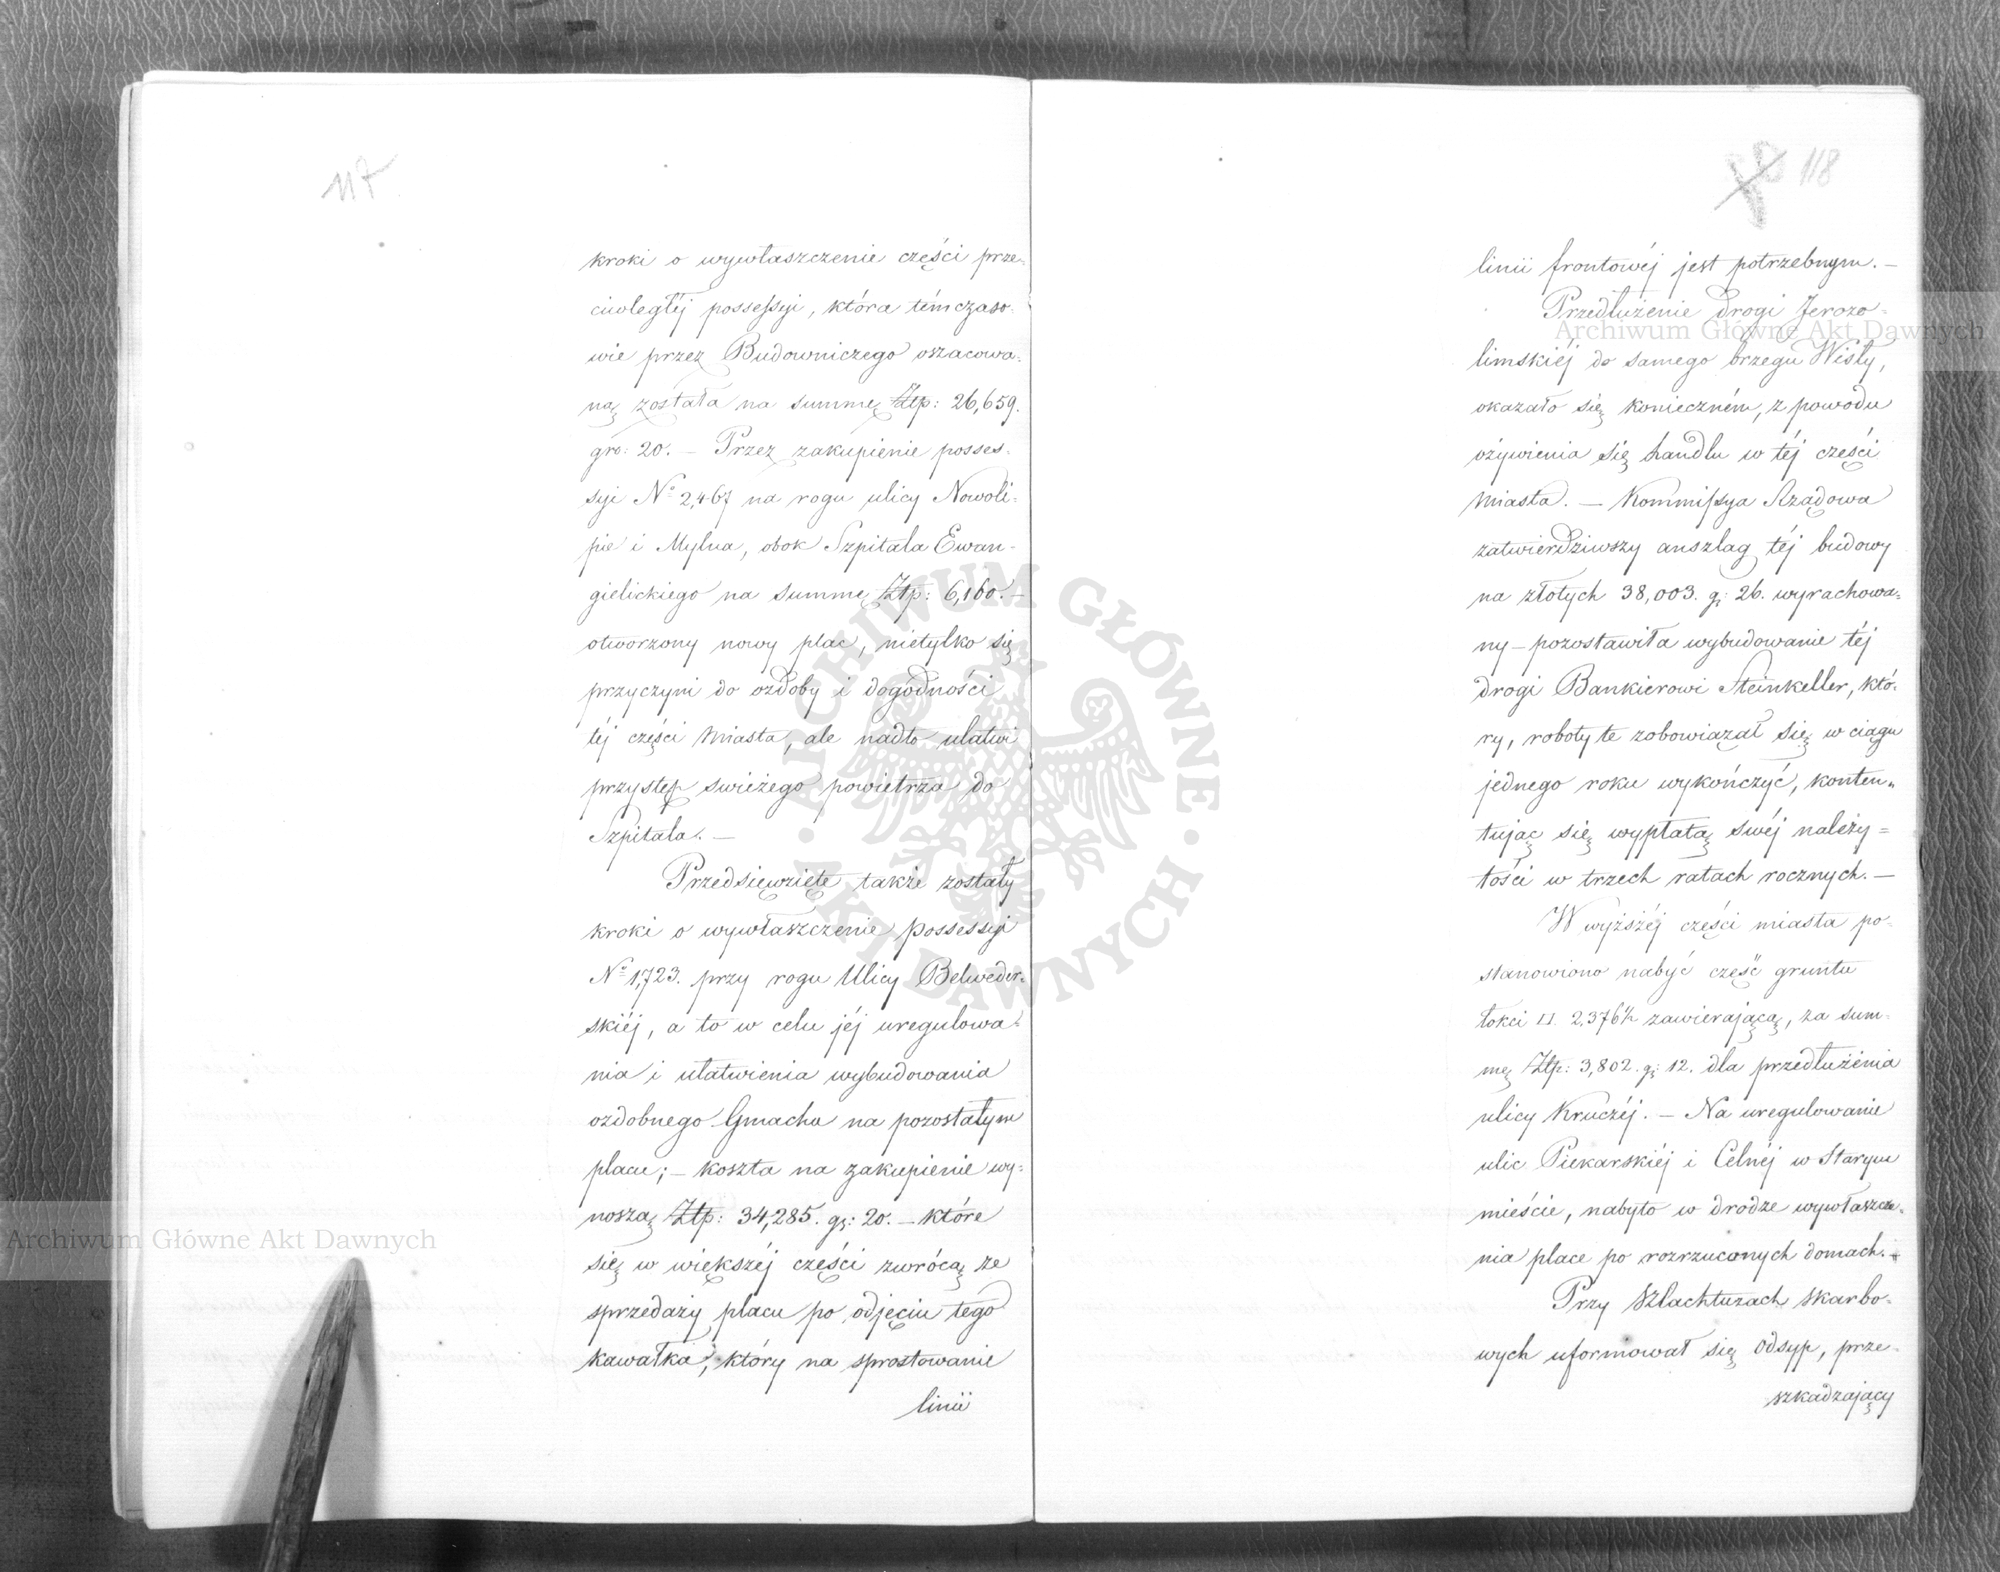 117
kroki o wywłaszczenie części prze-
ciwległéj possessyi, która témczaso-
wie przez Budowniczego oszacowa-
ną została na summę Złp: 26,659.
gro: 20. — Przez zakupienie posses-
syi Nº 2,467 na rogu ulicy Nowoli-
pie i Mylna, obok Szpitala Ewan-
gielickiego na summę Złp: 6,160. —
otworzony nowy plac, nietylko się
przyczyni do ozdoby i dogodności
téj części Miasta, ale nadto ułatwi
przystęp swieżego powietrza do
Szpitala. —
Przedsięwzięte także zostały
kroki o wywłaszczenie possessyi
Nº 1,723. przy rogu Ulicy Belweder-
skiéj, a to w celu jéj uregulowa-
nia i ułatwienia wybudowania
ozdobnego Gmachu na pozostałym
placu; — koszta na zakupienie wy-
noszą Złp: 34,285. g: 20. — które
się w większéj części zwrócą ze
sprzedaży placu po odjęciu tego
kawałka, który na sprostowanie
linii
118
linii frontowéj jest potrzebnym. —
Przedłużenie drogi Jerozo-
limskiéj do samego brzegu Wisły,
okazało się konieczném, z powodu
ożywienia się handlu w téj części
Miasta. — Kommissya Rządowa
zatwierdziwszy anszlag téj budowy
na złotych 38,003. g: 26. wyrachowa-
ny — pozostawiła wybudowanie téj
drogi Bankierowi Steinkeller, któ-
ry, roboty te zobowiązał się w ciągu
jednego roku wykończyć, konten-
tując się wypłatą swéj należy-
tości w trzech ratach rocznych. —
W wyższéj części miasta po-
stanowiono nabyć część gruntu
łokci □ 2,376½ zawierającą, za sum-
mę Złp: 3,802. g: 12. dla przedłużenia
ulicy Kruczéj. — Na uregulowanie
ulic Piekarskiéj i Celnéj w Starym
mieście, nabyto w drodze wywłaszcze-
nia place po rozrzuconych domach. —
Przy Szlachtuzach skarbo-
wych uformował się odsyp, prze-
szkadzający
Archiwum Główne Akt Dawnych
Archiwum Główne Akt Dawnych
ARCHIWUM GŁÓWNE · AKT DAWNYCH ·